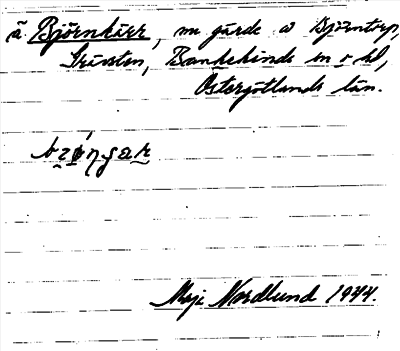 å Björnkärr, nu gärde a Björntorp,
Grävsten, Bankekinds sn o hd,
Östergötlands län.
Maj Nordlund 1944.